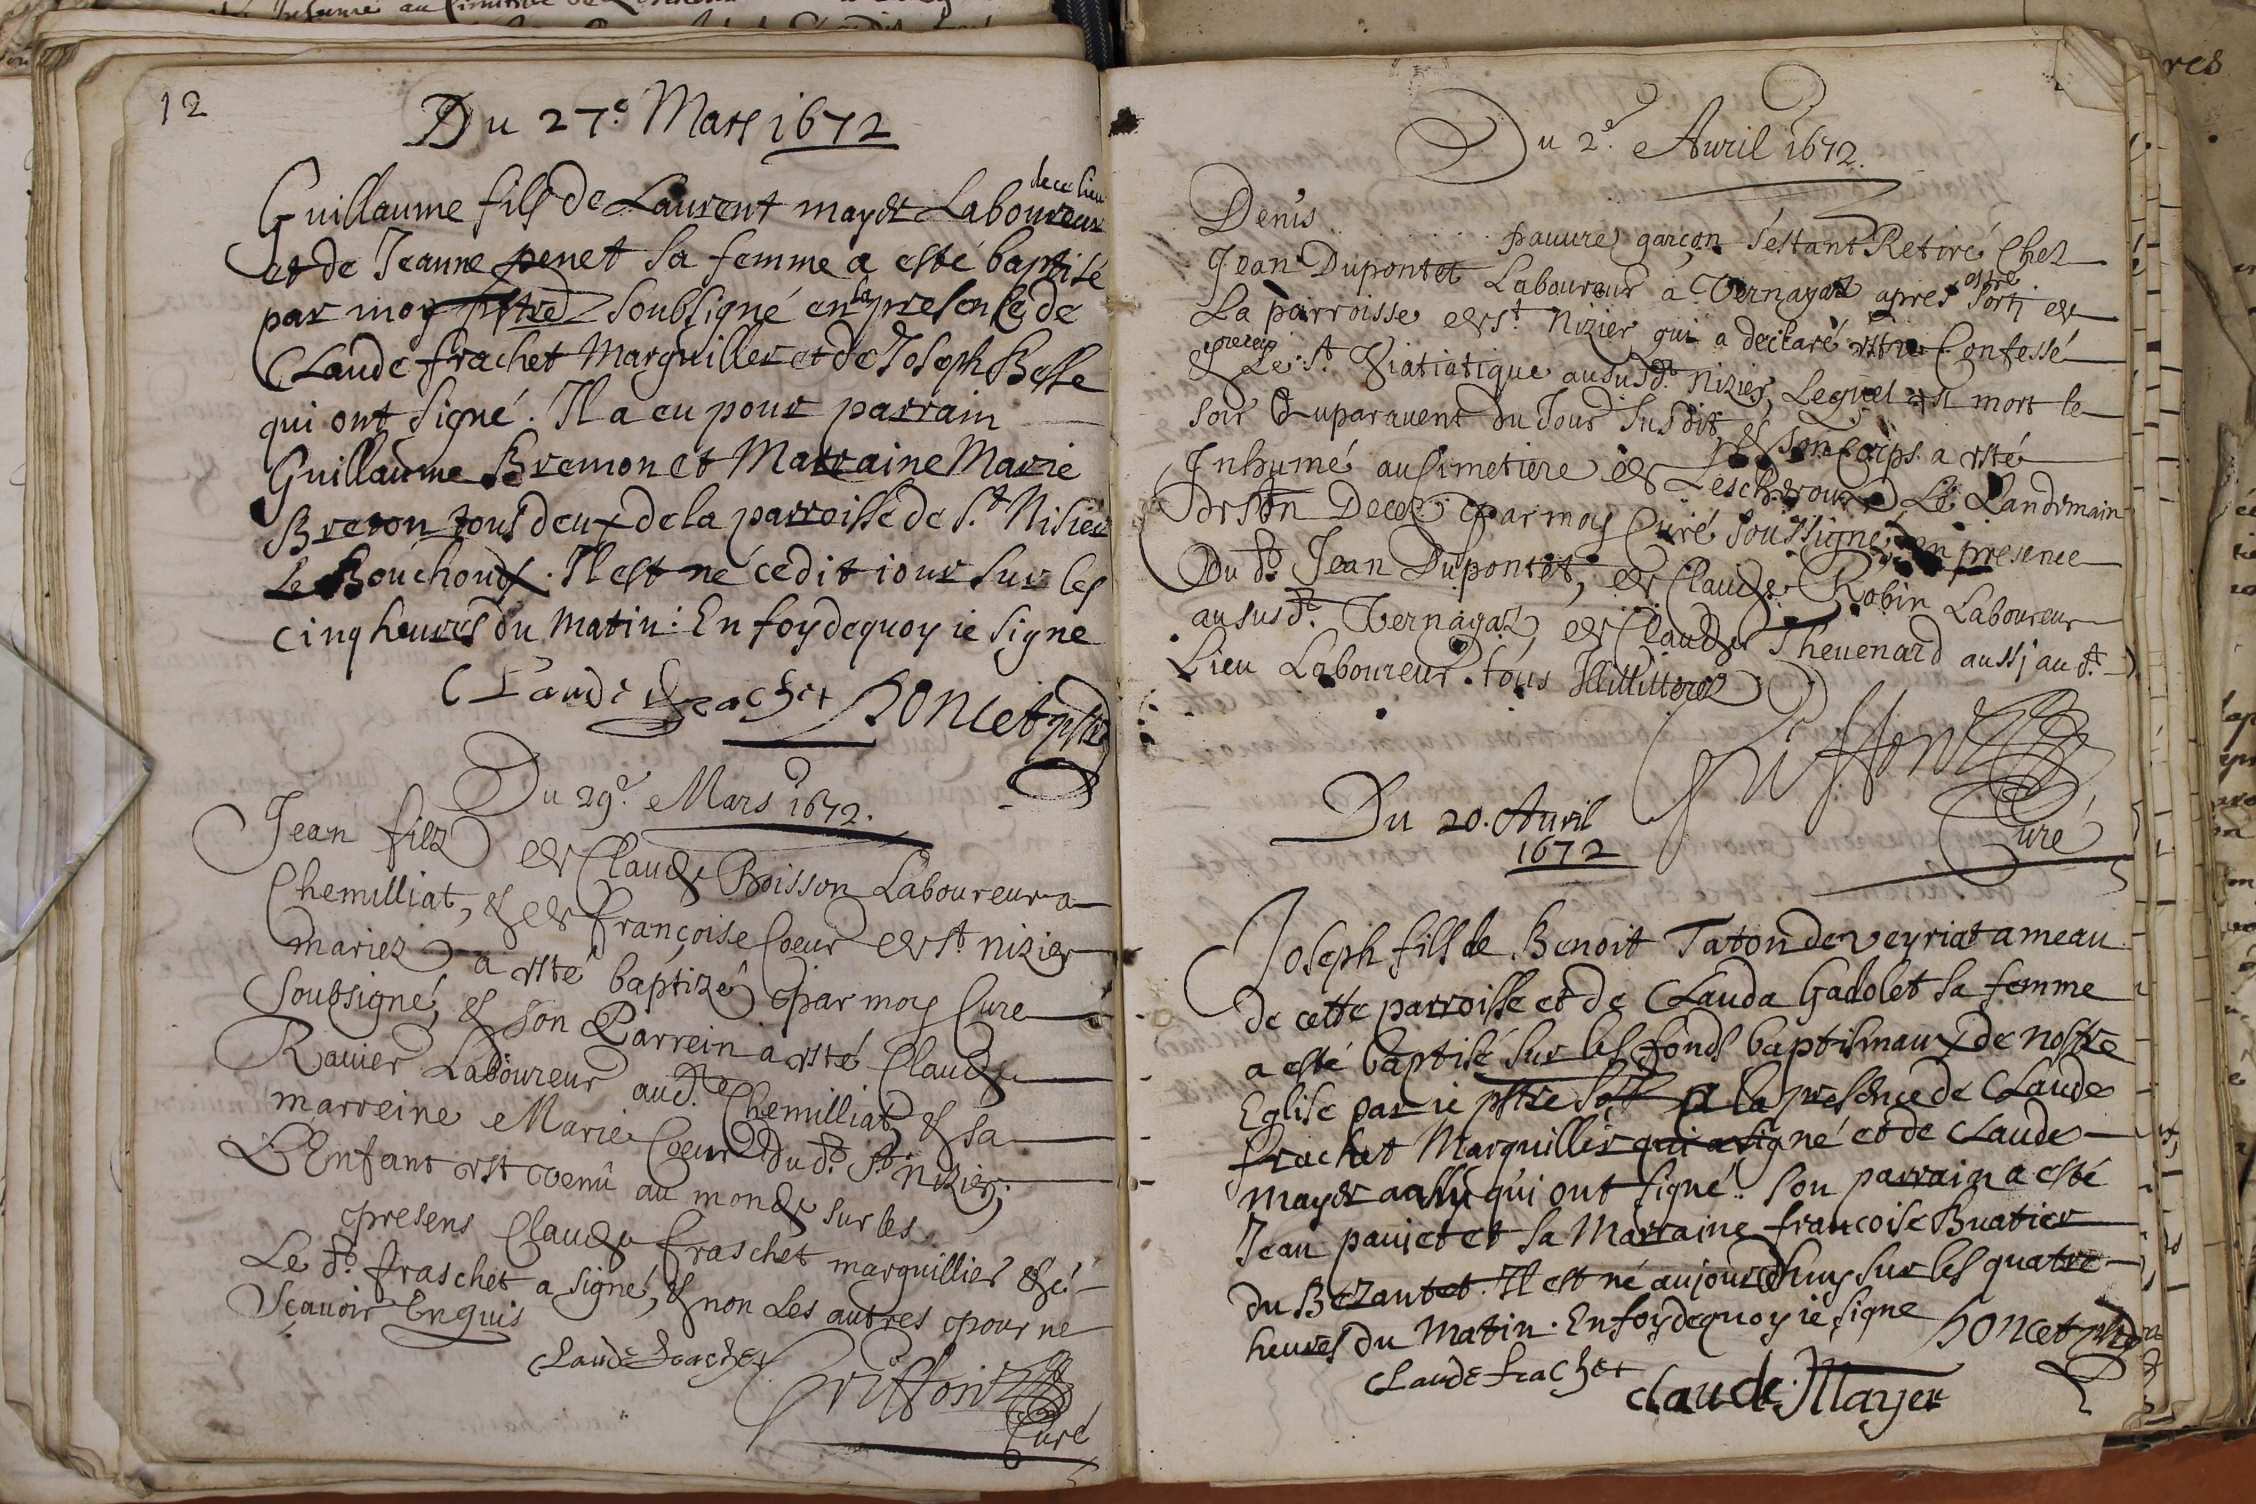 12
Du 27.e Mars 1672
de ce lieu
Guillaume fils de Laurent mayer Laboureur
et de Jeanne penet sa femme a esté baptisé
par moy pstre soubsigné en la presence de
Claude frachet Marguiller et de Joseph Besse
qui ont signé. Il a eu pour parrain
Guillaume Bremon et Marraine Marie
Breson tous deux de la parroisse de s.t Nisier
le Bouchoux. Il est né cedit iour sur les
cinq heures du Matin: En foy dequoy ie signe
Claude frachet honcet pstre
Du 29.e Mars 1672.
Jean filz de Claude Boisson Laboureur a
Chemilliat, & de françoise Coeur de st nizier
mariez a esté baptizé par moy Curé
soubsigné, & son Parrein a esté Claude
Ravier Laboureur aud. Chemilliat & sa
marreine Marie Coeur du d.t st nizier;
L'Enfant est venû au monde sur les
presens Claude fraschet marguillier &c
Le d.t fraschet a signé, & non Les autres pour ne
sçavoir Enquis
Claude frachet Griffon
Curé
Du 2.e Avril 1672.
Denis pauvre garçon s'estant Retiré Chez
Jean Dupontet Laboureur à Vernayaz apres estre sorti de
La parroisse de st. Nizier, qui a declaré estre Confessé
& receu Le s.t Viatiatique au susd.t Nizier, Lequel est mort le
soir Auparavent du Jour susdit, & son Corps a esté
Inhumé au simetiere de Lescheroux Le Landemain
de son Decez par moy Curé soussigné en presence
Du d.t Jean Dupontet, de Claude Robin Laboureur
au susd.t Vernayaz, de Claude Thevenard aussj au d.t
Lieu Laboureur. tous Jllitterez
Griffon
Curé
Du 20. Avril
1672
Joseph fils de Benoit Taton de veyriat ameau
de cette parroisse et de Clauda Gadolet sa femme
a esté baptisé sur les fonds baptismaux de nostre
Eglise par ie pstre a la presence de Claude
frachet Marguiller qui a signé et de Claude
mayer aussy qui ont signé. son parrain a esté
Jean paniet et sa Marraine francoise Buatier
du Bezantet. Il est né aujourdhuy sur les quatre
heures du Matin. En foy dequoy ie signe honcet pstre
Claude frachet
claude Mayer